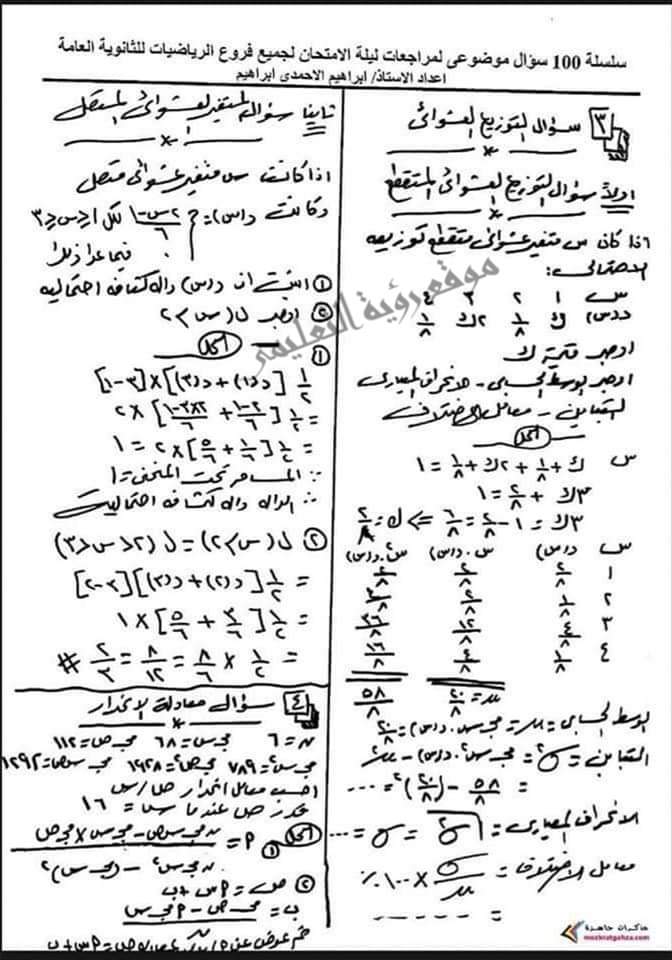 سلسلة 100 سؤال موضوعى لمراجعات ليلة الامتحان لجميع فروع الرياضيات للثانوية العامة
اعداد الاستاذ/ ابراهيم الاحمدى ابراهيم
٣ سؤال التوزيع العشوائى
اولاً سؤال التوزيع العشوائى المتقطع
اذا كان س متغير عشوائى متقطع توزيعه
الاحتمالى:
س ١ ٢ ٣ ٤
د(س) ك ١/٨ ٢ك ١/٨
اوجد قيمة ك
اوجد الوسط الحسابى - الانحراف المعيارى
التباين - معامل الاختلاف
الحل
ك + ١/٨ + ٢ك + ١/٨ = ١
٣ك + ٢/٨ = ١
٣ك = ١ - ٢/٨ = ٦/٨ <= ك = ٢/٨
س د(س) س.د(س) س٢.د(س)
١ ٢/٨ ٢/٨ ٢/٨
٢ ١/٨ ٢/٨
٣ ٤/٨ ١٢/٨ ٣٦/٨
٤ ١/٨ ٤/٨ ١٦/٨
μ = ٢٠/٨ ٥٨/٨
الوسط الحسابى = μ = مجـ س.د(س) = ٢٠/٨
التباين = σ٢ = مجـ س٢.د(س) - μ٢
= ٥٨/٨ - (٢٠/٨)٢ = ----
الانحراف المعيارى = σ = √σ٢ = ----
معامل الاختلاف = σ/μ × ١٠٠٪
= -----
ثانيا سؤال المتغير العشوائى المتصل
اذا كانت س متغير عشوائى متصل
وكانت د(س) = { ٢س-١/٦ لكل ١<س<٣
٠ فيما عدا ذلك
١ اثبت ان د(س) دالة كثافة احتمالية
٢ اوجد ل(س>٢)
الحل
١
١/٢ [د(١) + د(٣)] × [٣-١]
= ١/٢ [٢-١/٦ + ٢×٣-١/٦] × ٢
= ١/٢ [١/٦ + ٥/٦] × ٢ = ١
∵ المساحة تحت المنحنى = ١
∴ الدالة دالة كثافة احتمالية
٢ ل(س>٢) = ل(٢<س<٣)
= ١/٢ [د(٢) + د(٣)] [٣-٢]
= ١/٢ [٣/٦ + ٥/٦] × ١
= ١/٢ × ٨/٦ = ٨/١٢ = ٢/٣ #
٤ سؤال معادلة الانحدار
ن = ٦ مجـ س = ٦٨ مجـ ص = ١١٢
مجـ س٢ = ٧٨٩ مجـ ص٢ = ١٩٢٨ مجـ س ص = ١٢٩٢
احسب معامل انحدار ص/س
قدر ص عندما س = ١٦
الحل
١ م = ن مجـ س ص - مجـ س × مجـ ص
ن مجـ س٢ - (مجـ س)٢
٢ ص = م س + ب
ب = مجـ ص - م مجـ س
ن
موقع رؤية التعليمى
مذكرات جاهزة
mozkratgahza.com